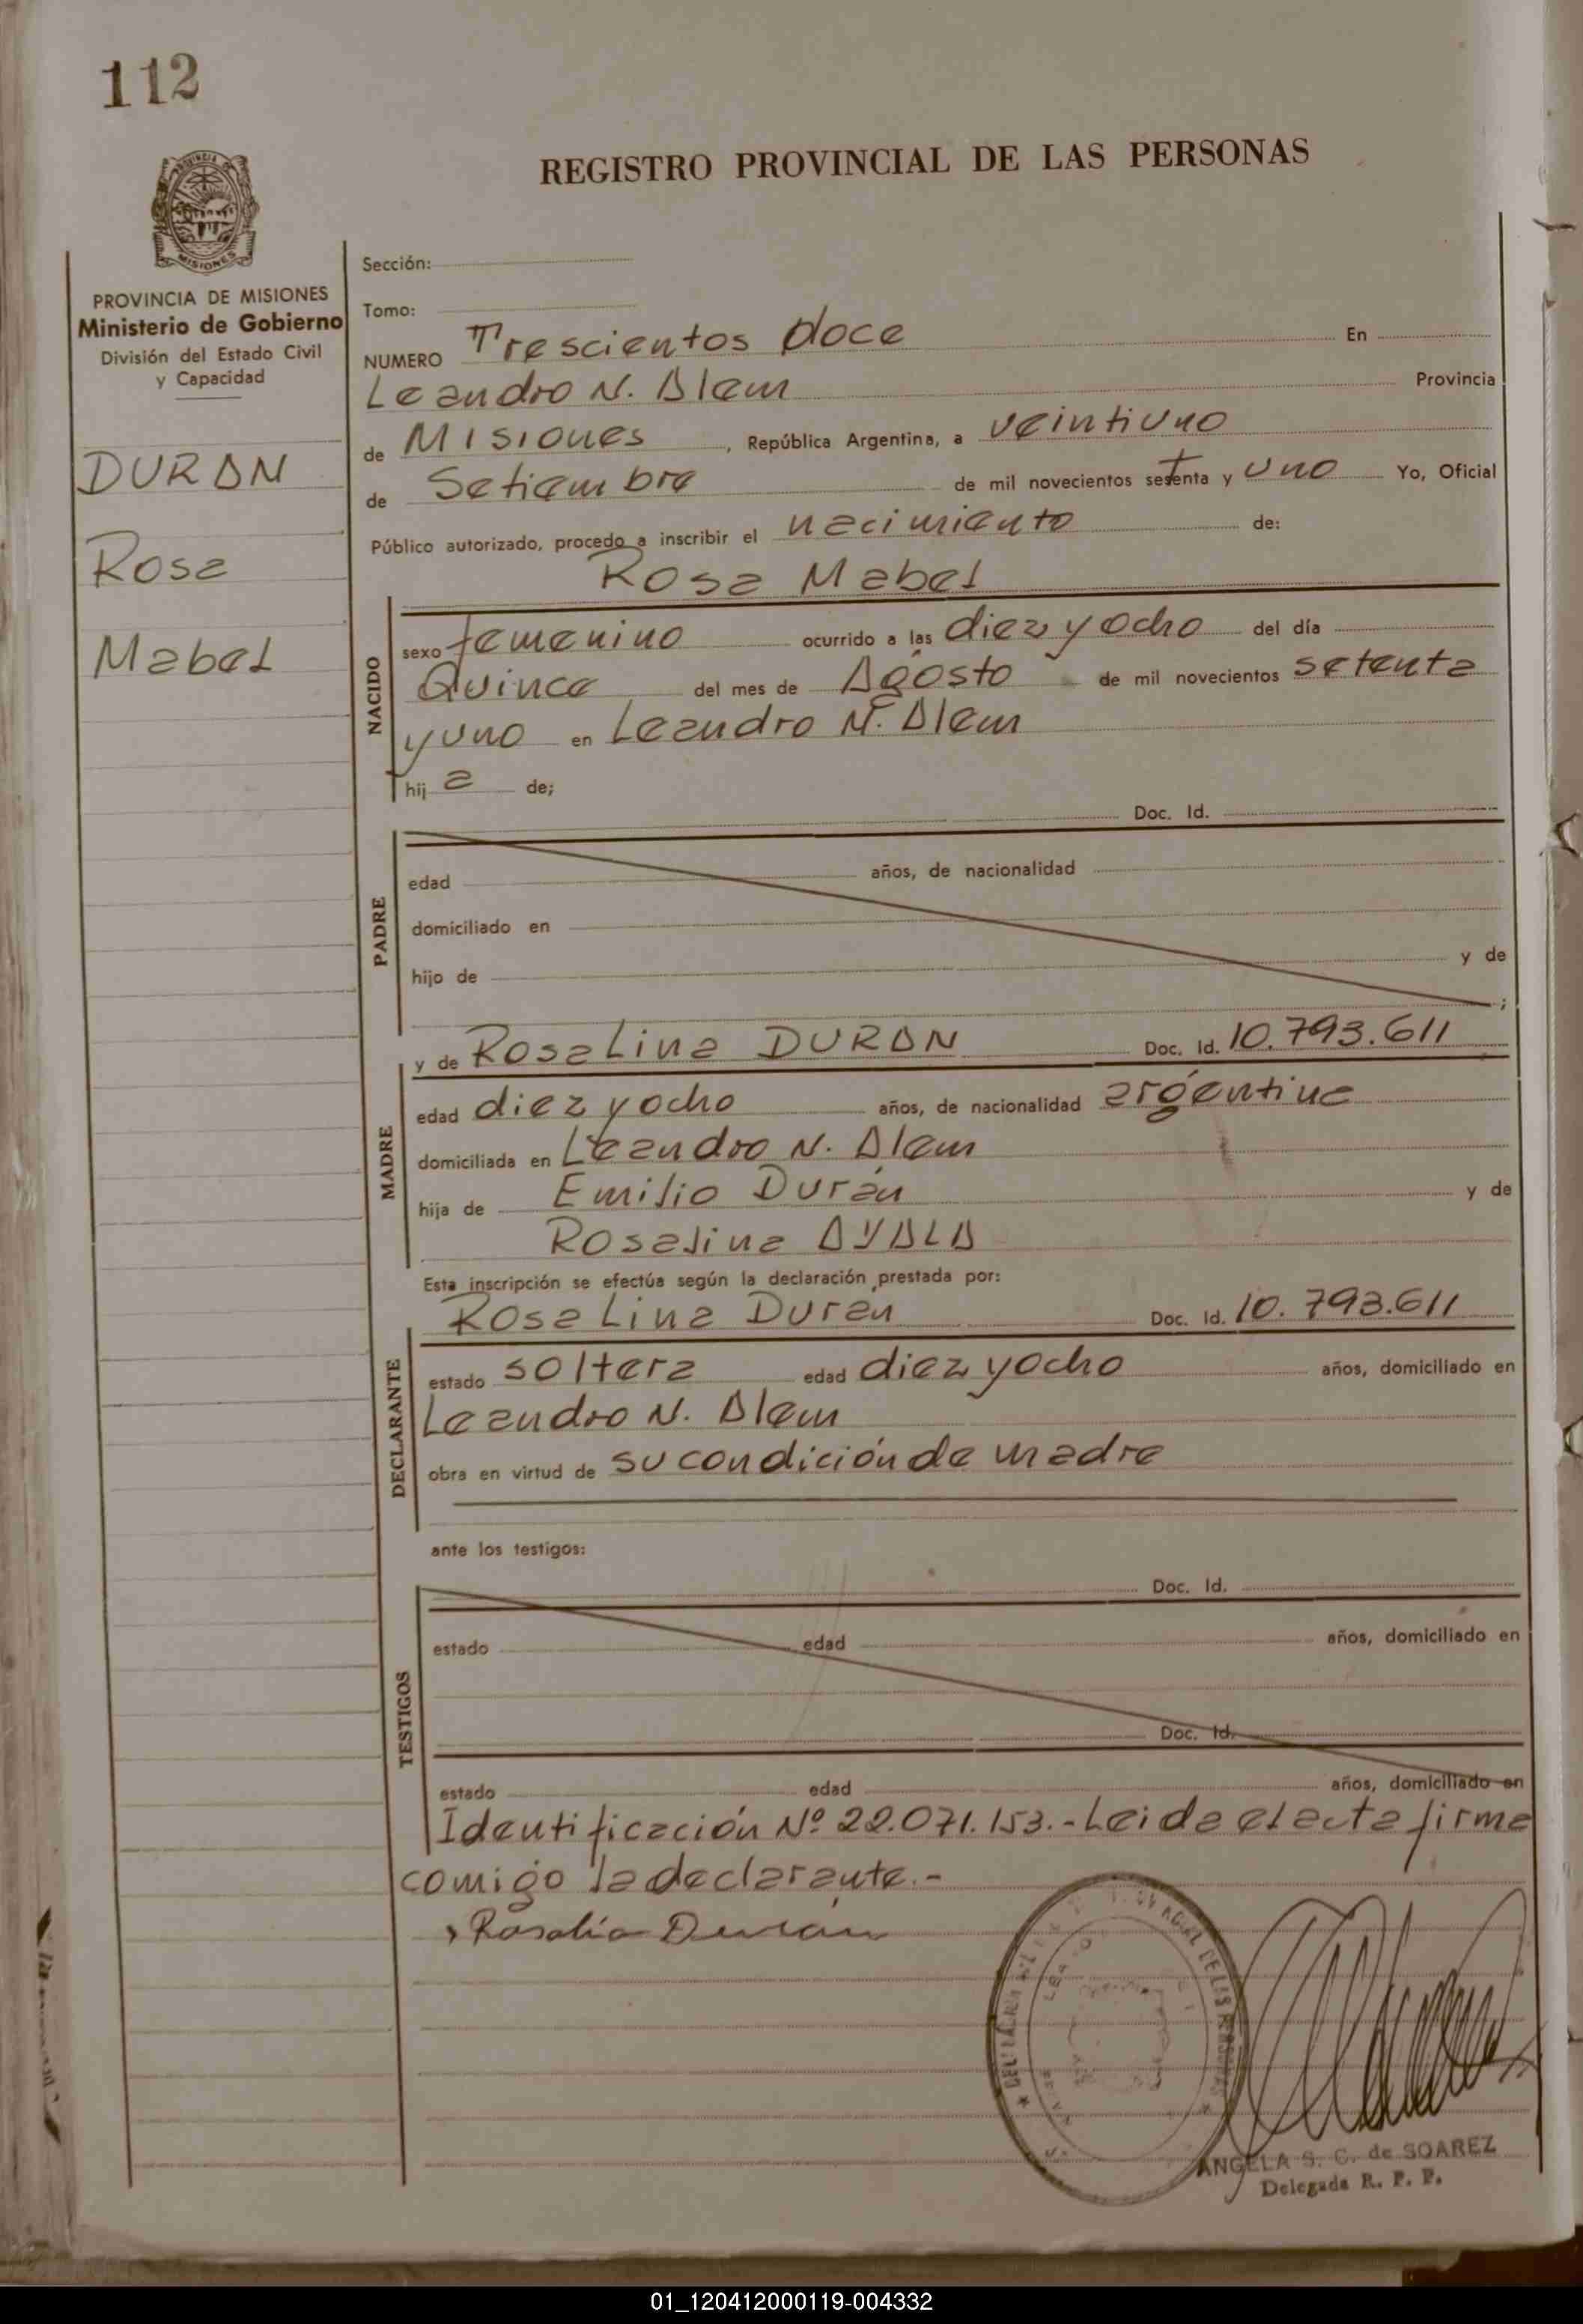 112
REGISTRO PROVINCIAL DE LAS PERSONAS
MISIONES
PROVINCIA DE MISIONES
Ministerio de Gobierno
División del Estado Civil
y Capacidad
DURAN
Rosa
Mabel
Sección:
Tomo:
NUMERO Trescientos doce En
Leandro N. Alem Provincia
de Misiones, República Argentina, a veintiuno
de Setiembre de mil novecientos setenta y uno Yo, Oficial
Público autorizado, procedo a inscribir el nacimiento de:
Rosa Mabel
NACIDO
sexo femenino ocurrido a las diez y ocho del día
Quince del mes de Agosto de mil novecientos setenta
y uno en Leandro N. Alem
hija de;
Doc. Id.
PADRE
edad años, de nacionalidad
domiciliado en
hijo de y de
;
y de Rosalina DURAN Doc. Id. 10.793.611
MADRE
edad diez y ocho años, de nacionalidad argentina
domiciliada en Leandro N. Alem
hija de Emilio Durán y de
Rosalina AYALA
Esta inscripción se efectúa según la declaración prestada por:
Rosalina Durán Doc. Id. 10.793.611
DECLARANTE
estado soltera edad diez y ocho años, domiciliado en
Leandro N. Alem
obra en virtud de su condición de madre
ante los testigos:
Doc. Id.
TESTIGOS
estado edad años, domiciliado en
Doc. Id.
estado edad años, domiciliado en
Identificación Nº 22.071.153.- Leida el acta firma
comigo la declarante.-
Rosalía Durán
ANGELA S. C. de SOAREZ
Delegada R. P. P.
01_120412000119-004332